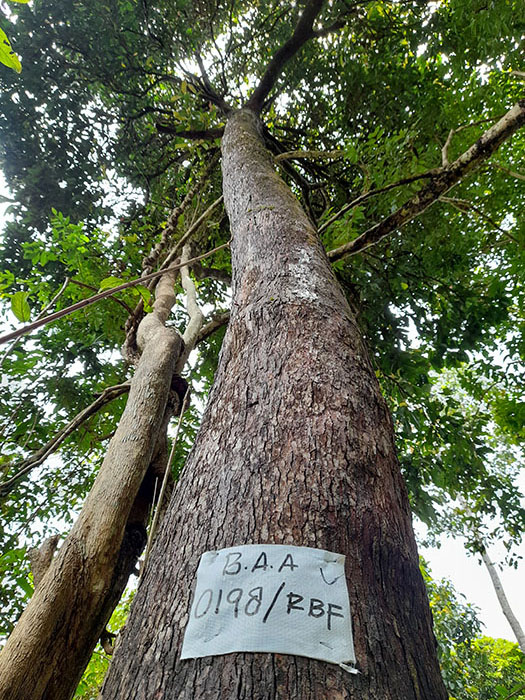 B.A.A
0198/RBF